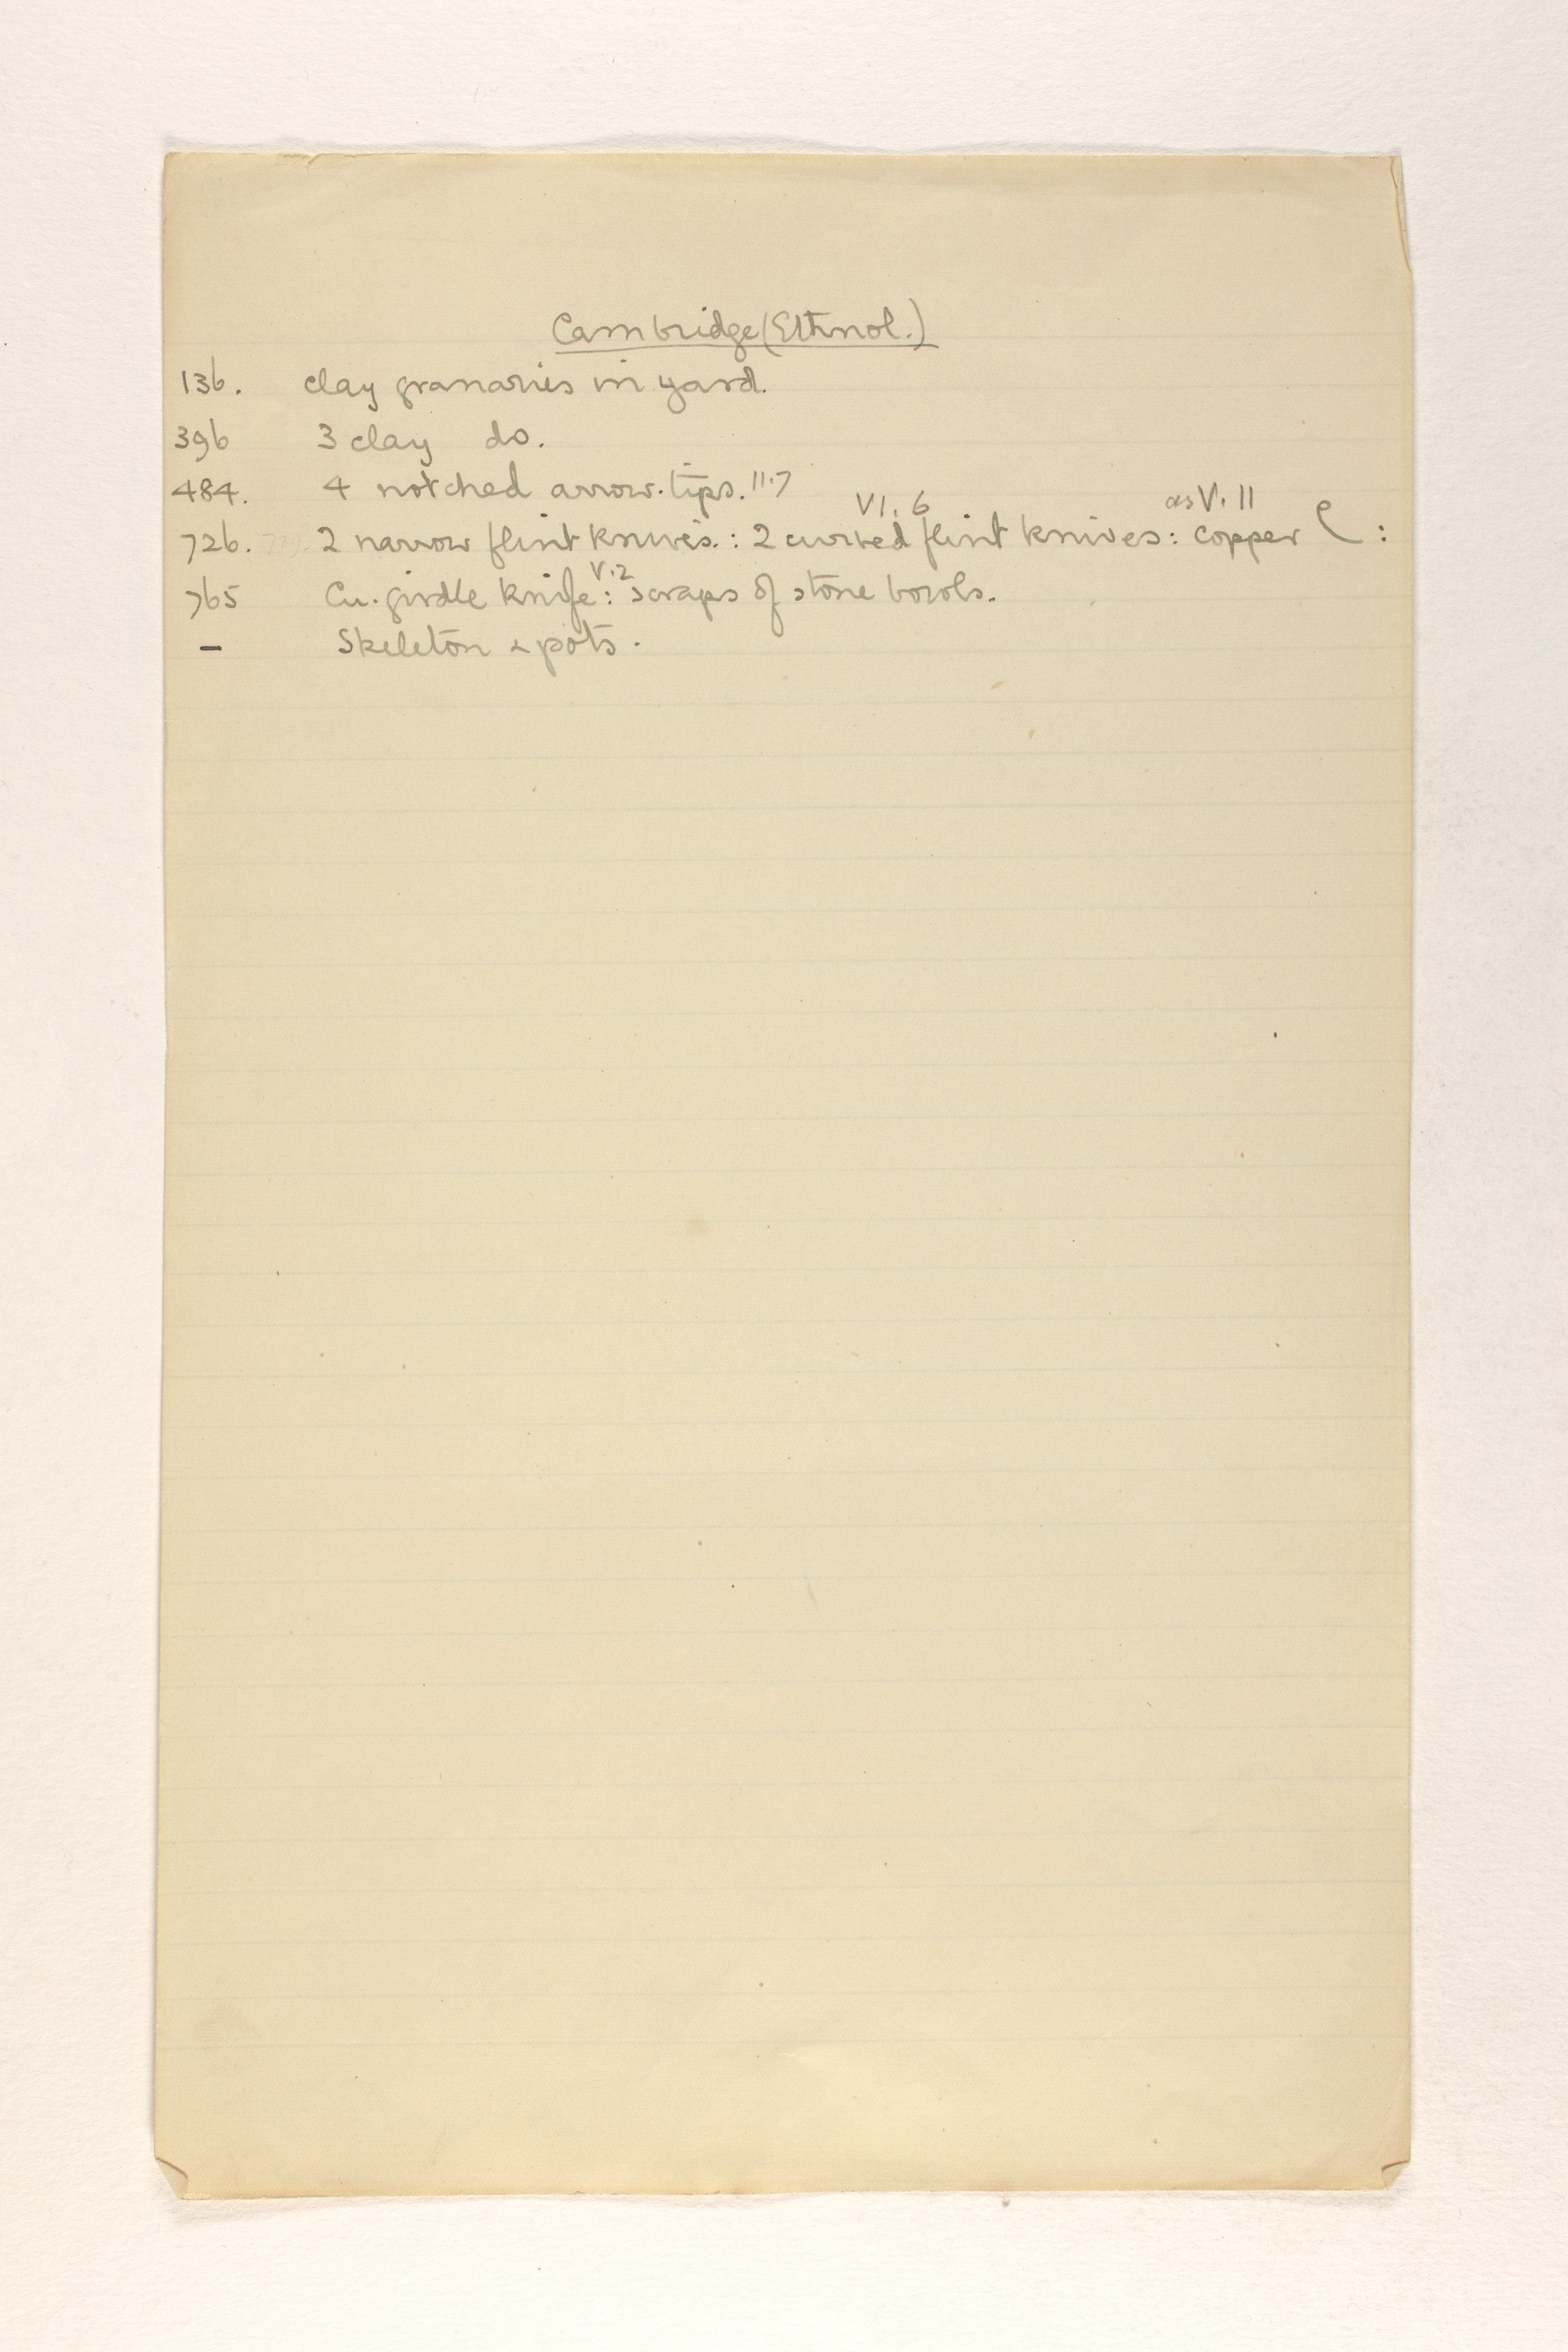 Cambridge (Ethnol.)
136. clay granaries in yard.
396 3 clay do.
484. 4 notched arrow-tips. 11.7
VI. 6 as V. 11
726. 2 narrow flint knives.: 2 curved flint knives: copper :
V.2
765 Cu. girdle knife: scraps of stone bowls.
– Skeleton & pots.